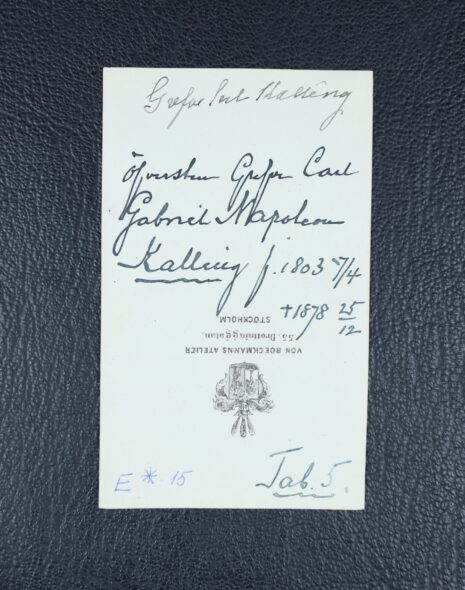 Grefve Carl Kalling
öfversten Grefve Carl
Gabriel Napoleon
Kalling f. 1803 7/4
†1878 25/12
STOCKHOLM
55. Drottninggatan,
VON BOECKMANNS ATELIER
E * 15
Tab. 5.